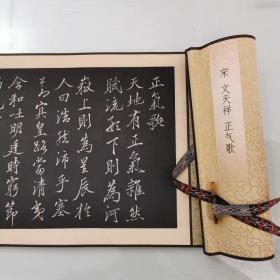 宋 文天祥 正气歌
正氣歌
天地有正氣雜然
賦流形下則為河
嶽上則為星辰於
人曰浩然沛乎塞
蒼冥皇路當清夷
含和吐明廷時窮節